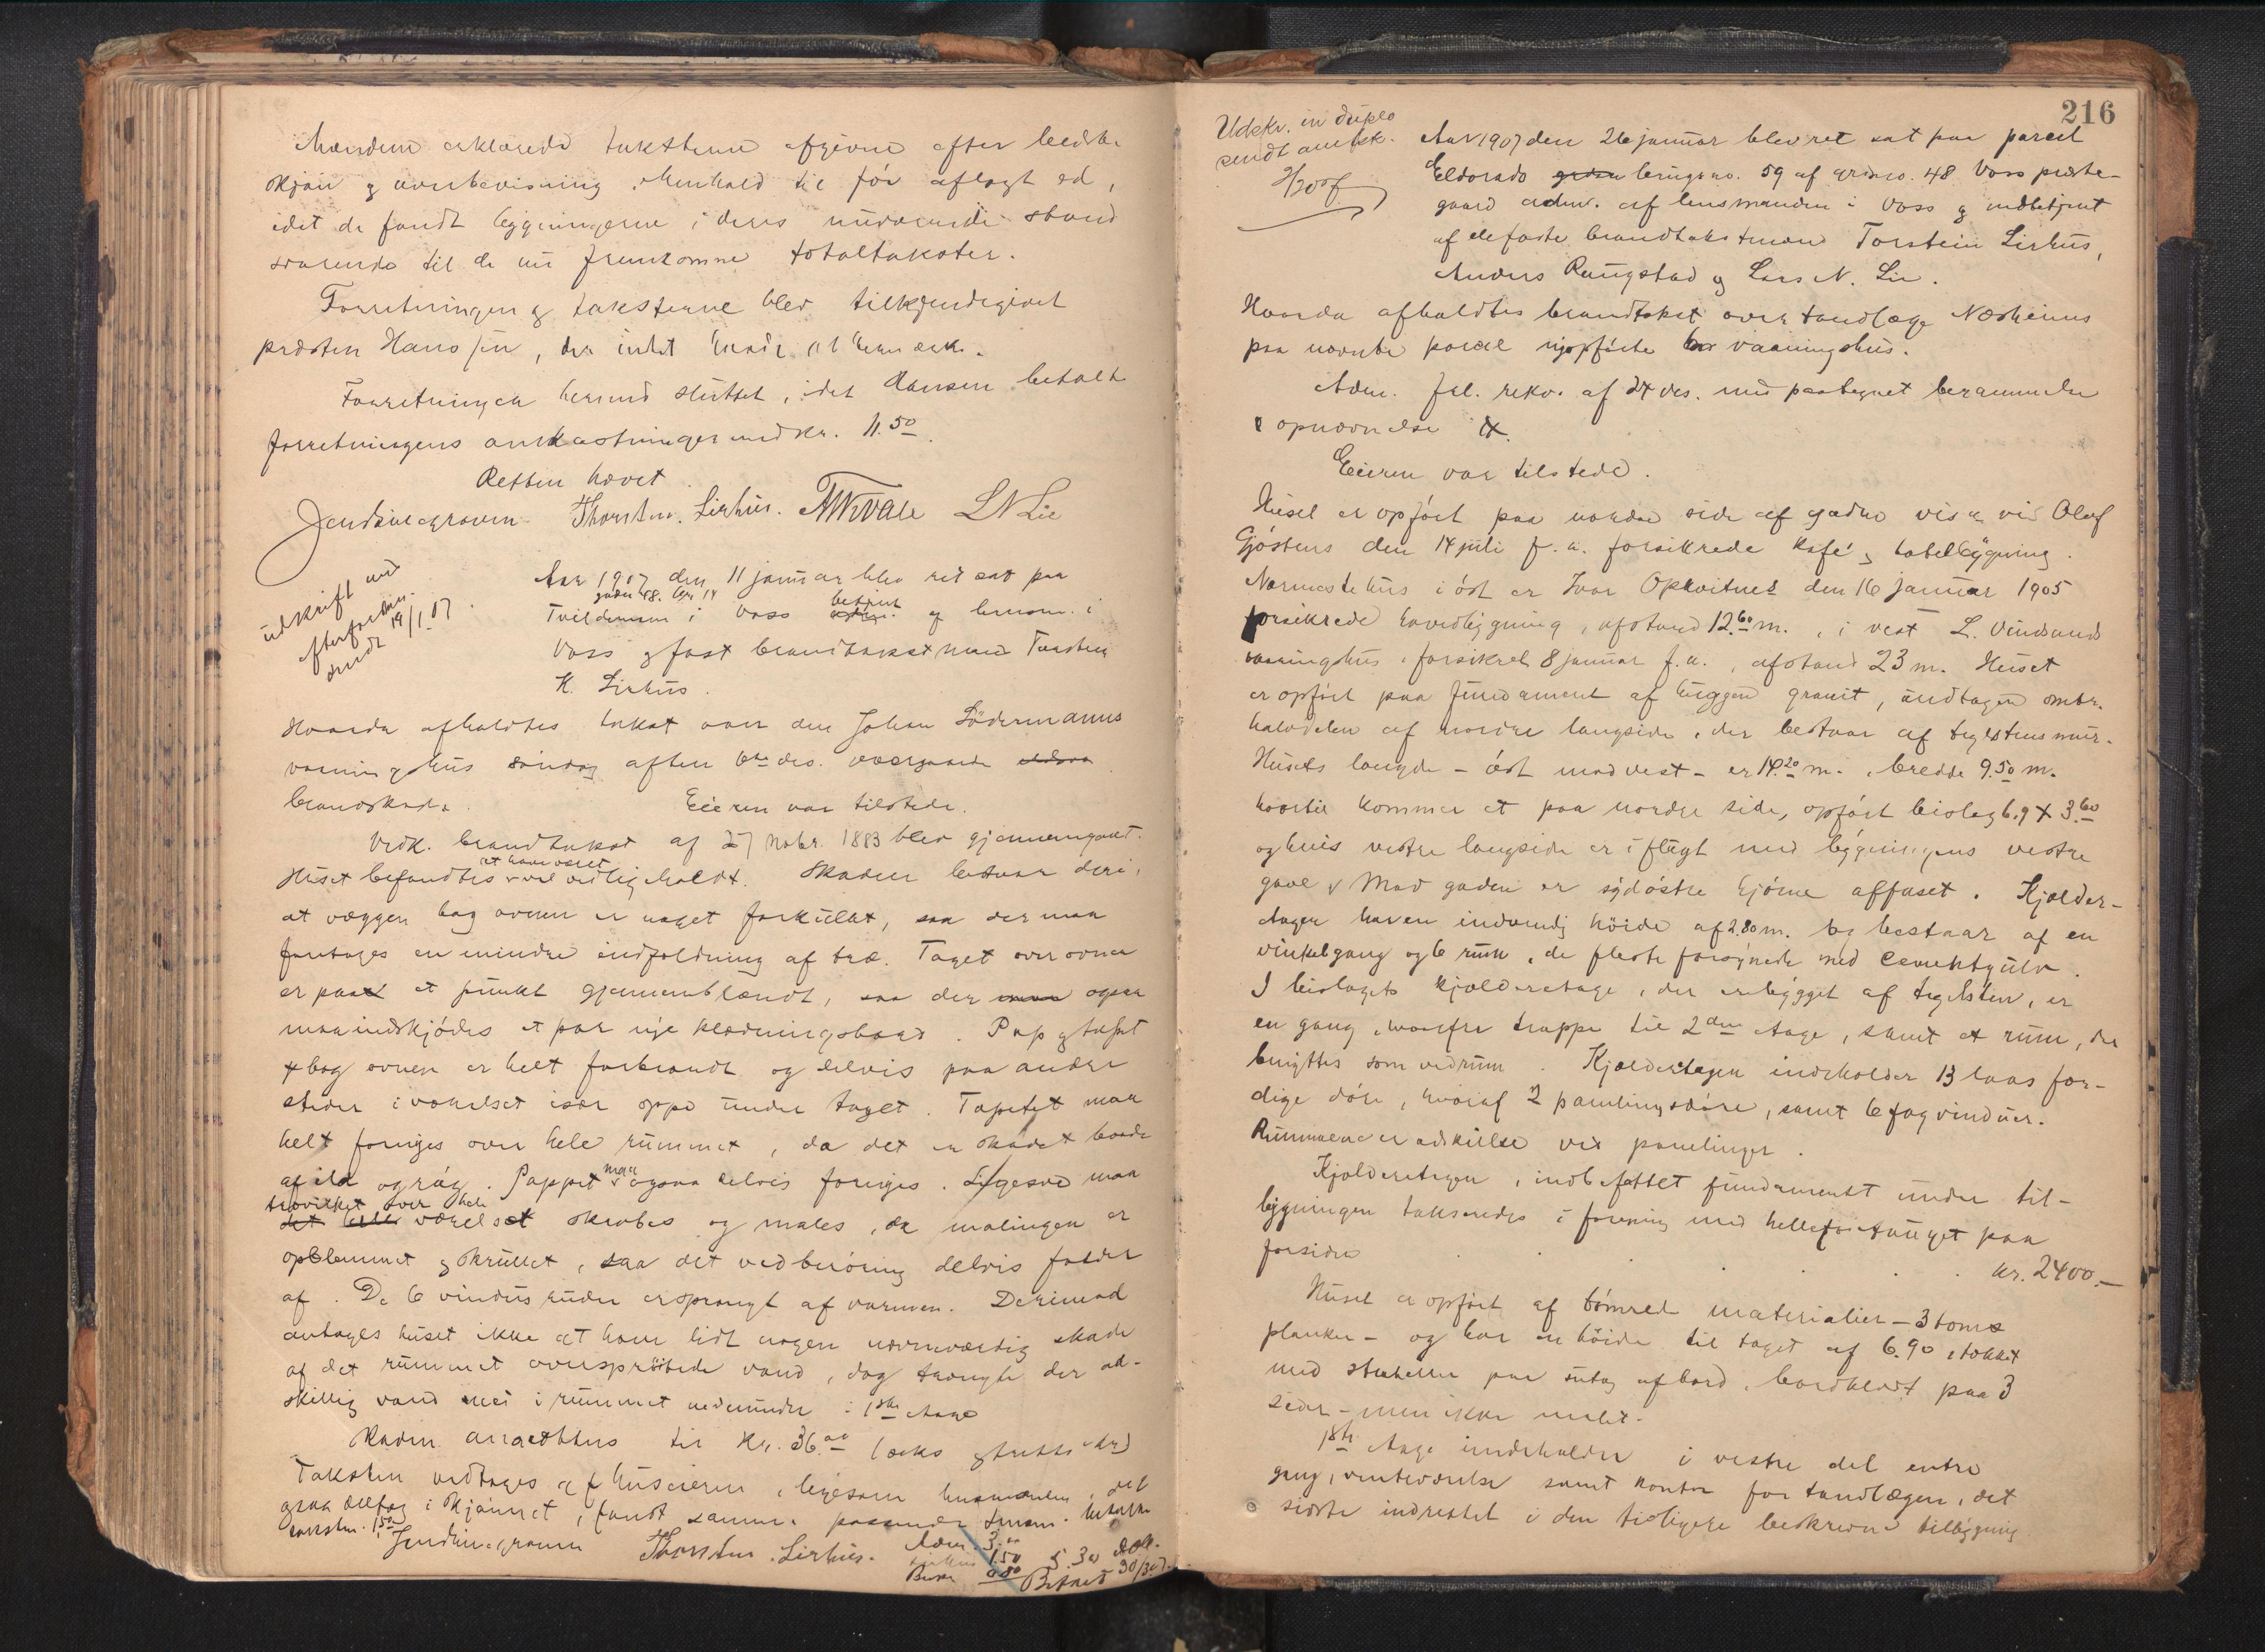 Mændene erklærede taksterne afgivne efter bedste
skjøn og overbevisning i henhold til før aflagt ed,
idet de fandt bygningerne i deres nuværende stand
svarende til de nu fremkomne totaltakster.
Forretningen og taksterne blev tilkjendegivet
presten Hansen, der intet havde at bemærke.
Forretningen hermed sluttet, idet Hansen betalte
forretningens omkostninger med kr. 11.50.
Retten hævet.
Thorsten. Lirhus. LNLie
udskrift med
efterforskn.
sendt 19/1 07
Aar 1907 den 11 januar blev ret sat paa
gaden 48. br 14
Tvildemoen i Voss betjent af lensm. i
Voss og fast brandtakstmand Torsten
K. Lirhus.
Hvorda afholdtes takst over den Johan Södermanns
vaaningshus søndag aften 6te ds. overgaaede
brandskade. Eieren var tilstede.
Vedk. brandtakst af 27 Nobr. 1883 blev gjennemgaaet.
at have været
Huset befandtes vel vedligeholdt. Skaden bestaar deri,
at væggen bag ovnen er noget forkullet, saa der maa
foretages en mindre indfoldning af træ. Taget over ovnen
er paa et punkt gjennembrændt, saa der ogsaa
maa indskjødes et par nye klædningsbord. Pap og tapet
bag ovnen er helt forbrændt og delvis paa andre
steder i værelset især oppe under taget. Tapetet maa
helt fornyes over hele rummet, da det er skadet baade
af ild og røg. Pappet maa ogsaa delvis fornyes. Ligesaa maa
trævirket over hele
værelset skrabes og males, da malingen er
opblemmet og skrullet, saa det ved berøring delvis falder
af. De 6 vindusruder er sprængt af varmen. Derimod
antages huset ikke at have lidt nogen nævneværdig skade
af det rummet oversprøitede vand, dog trængte der ad-
skillig vand ned i rummet nedenunder i 1ste etage
Skaden ansættes til Kr. 36.00 (seks og tretti kr.)
Taksten vedtages af huseieren, ligesom lensmanden, der
ogsaa deltog i skjønnet, fandt samme passende
Thorsten. Lirhus. Adm. 3.00
1.50 5.30
0.80 Betalt
216
Udskr. in duplo
sendt amtsk.
Aar 1907 den 26 januar blev ret sat paa parcel
Eldorado brugsno. 59 af grdsno. 48 Voss præste-
gaard adm. af lensmanden i Voss og medbetjent
af de faste brandtakstmænd Torstein Lirhus,
Anders Rungstad og Lars N. Lie.
Hvorda afholdtes brandtakst over tandlæge Næsheims
paa nævnte parcel nyopførte vaaningshus.
Adm. frl. rekv. af 24 ds. med paategnet berammelse
& opnævnelse
Eieren var tilstede.
Huset er opført paa nordre side af gaden vis a vis Olaf
Gjøsteins den 14 juli f.a. forsikrede kafé og hotelbygning.
Nærmeste hus i øst er Ivar Opkvitnes den 16 januar 1905
forsikrede hovedbygning, afstand 12.60 m., i vest L. Vindsands
vaaningshus, forsikret 8 januar f.a., afstand 23 m. Huset
er opført paa fundament af huggen granit, undtagen omtr.
halvdelen af nordre langside, der bestaar af teglstensmur.
Husets længde - øst mod vest - er 14.20 m., bredde 9.50 m.
hvortil kommer et paa nordre side, opført bislag 6.9 x 3.60
og hvis vestre langside er i flugt med bygningens vestre
gavl. Mod gaden er sydøstre hjørne affaset. Kjelder-
etagen har en indvendig høide af 2.80 m. og bestaar af en
vinkelgang og 6 rum, de fleste forsynede med cementgulv.
I bislagets kjelderetage, der er bygget af teglsten, er
en gang, hvorfra trappe til 2den etage, samt et rum, der
benyttes som vedrum. Kjelderetagen indeholder 13 laas fær-
dige døre, hvoraf 2 pamlingsdøre, samt 6 fag vinduer.
Rummene er adskilte ved panelinger.
Kjelderetagen, indbefattet fundamentet under til-
bygningen takseredes i forening med hellefortauget paa
forsiden kr. 2400.-
Huset er opført af tømret materialier - 3 toms
planker - og har en høide til taget af 6.90, tækket
med skiheller paa sutag af bord, bordklædt paa 3
sider - men ikke malet.
1ste etage indeholder i vestre del entre
gang, venteværelse samt kontor for tandlægen, det
sidste indrettet i den tidligere beskrevne tilbygning